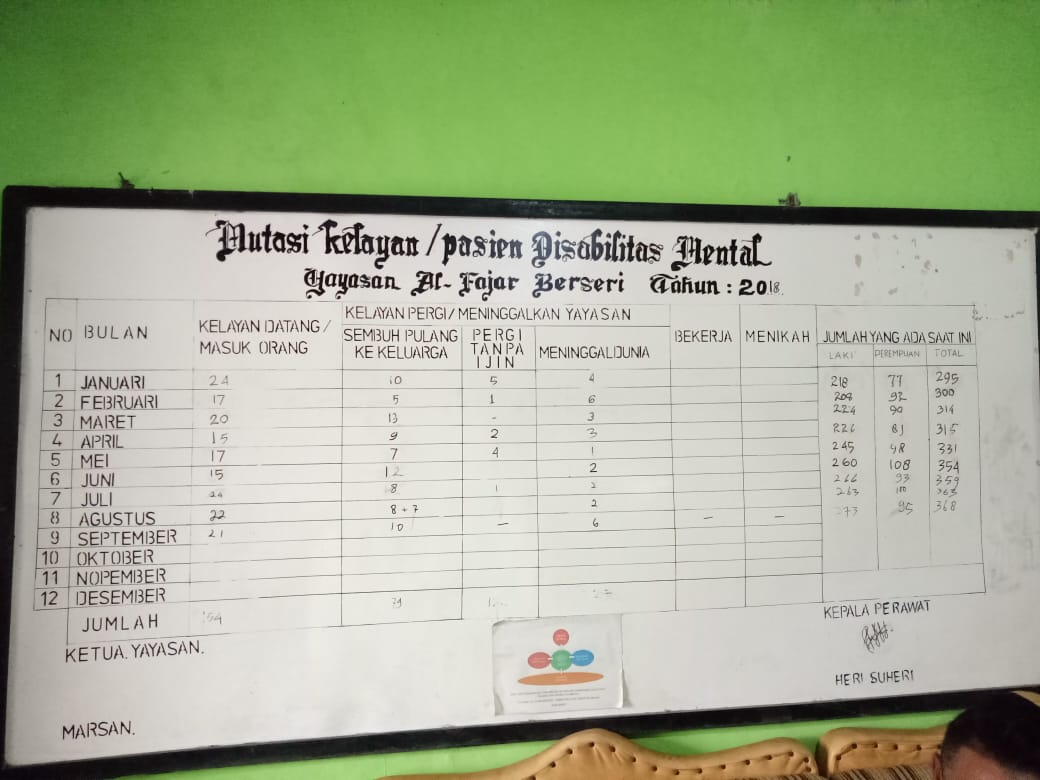 Mutasi kelayan / pasien Disabilitas Mental
Yayasan Al-Fajar Berseri Tahun : 2018
NO BULAN KELAYAN DATANG / MASUK ORANG KELAYAN PERGI / MENINGGALKAN YAYASAN BEKERJA MENIKAH JUMLAH YANG ADA SAAT INI
SEMBUH PULANG KE KELUARGA PERGI TANPA IJIN MENINGGAL DUNIA LAKI² PEREMPUAN TOTAL
1 JANUARI 24 10 5 4 218 77 295
2 FEBRUARI 17 5 1 6 208 92 300
3 MARET 20 13 - 3 224 90 314
4 APRIL 15 9 2 3 226 315
5 MEI 17 7 4 1 245 98 331
6 JUNI 15 12 2 260 108 354
7 JULI 24 8 1 2 266 93 359
8 AGUSTUS 22 8 + 7 2 263 100 363
9 SEPTEMBER 21 10 - 6 - - 273 95 368
10 OKTOBER
11 NOPEMBER
12 DESEMBER
JUMLAH 154 79
KETUA. YAYASAN.
KEPALA PERAWAT
MARSAN.
HERI SUHERI